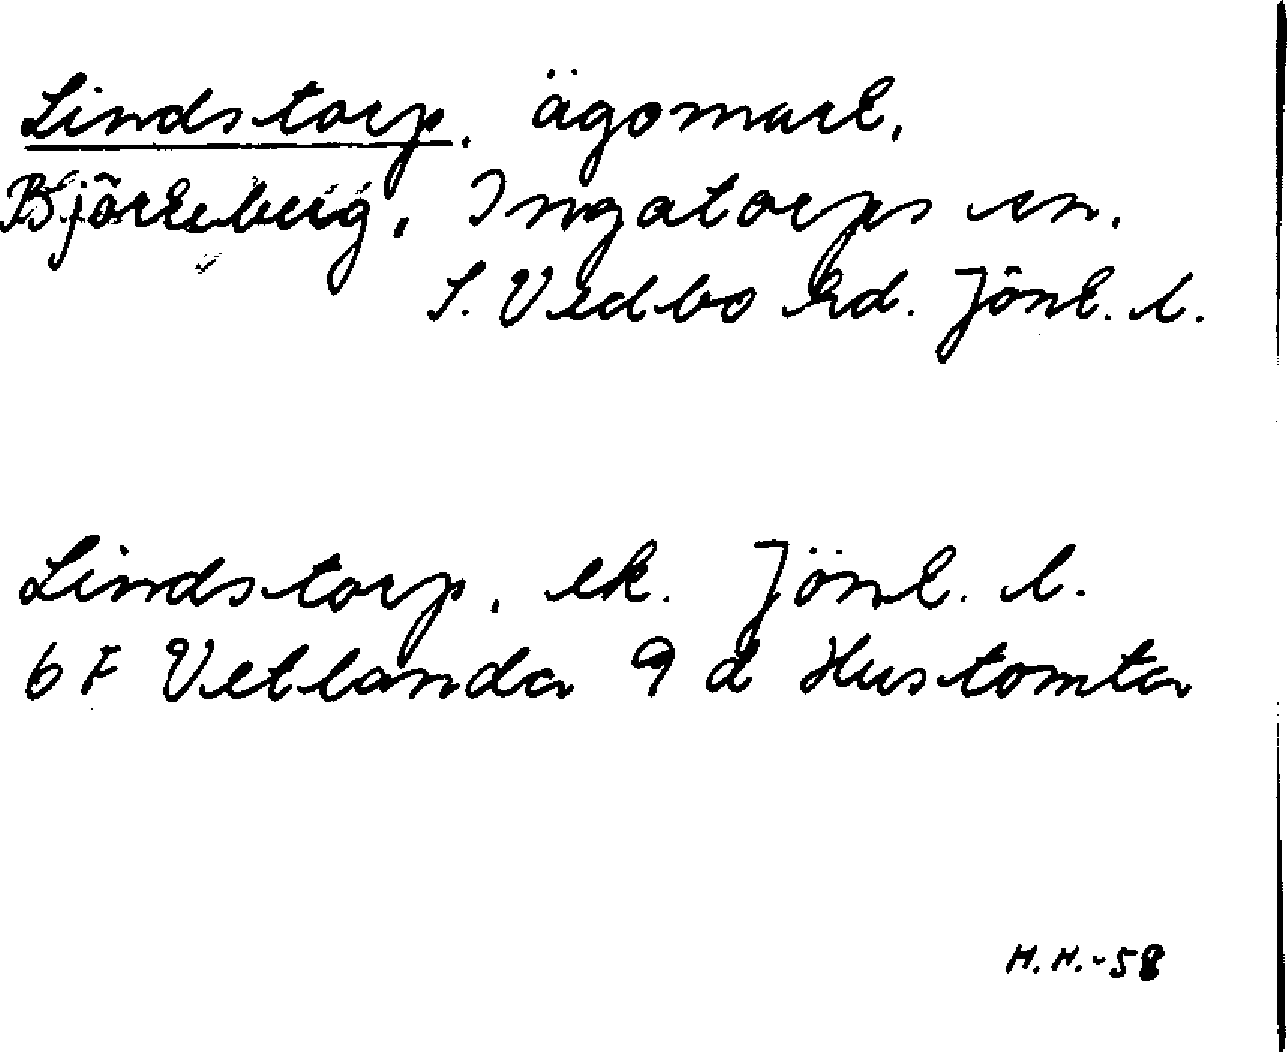 Lindstorp, ägomark,
Björkeberg, Ingatorps sn.
S. Vedbo hd. Jönk. l.
Lindstorp, ek. Jönk. l.
6 F Vetlanda 9 d Hustomta
H.H.-58